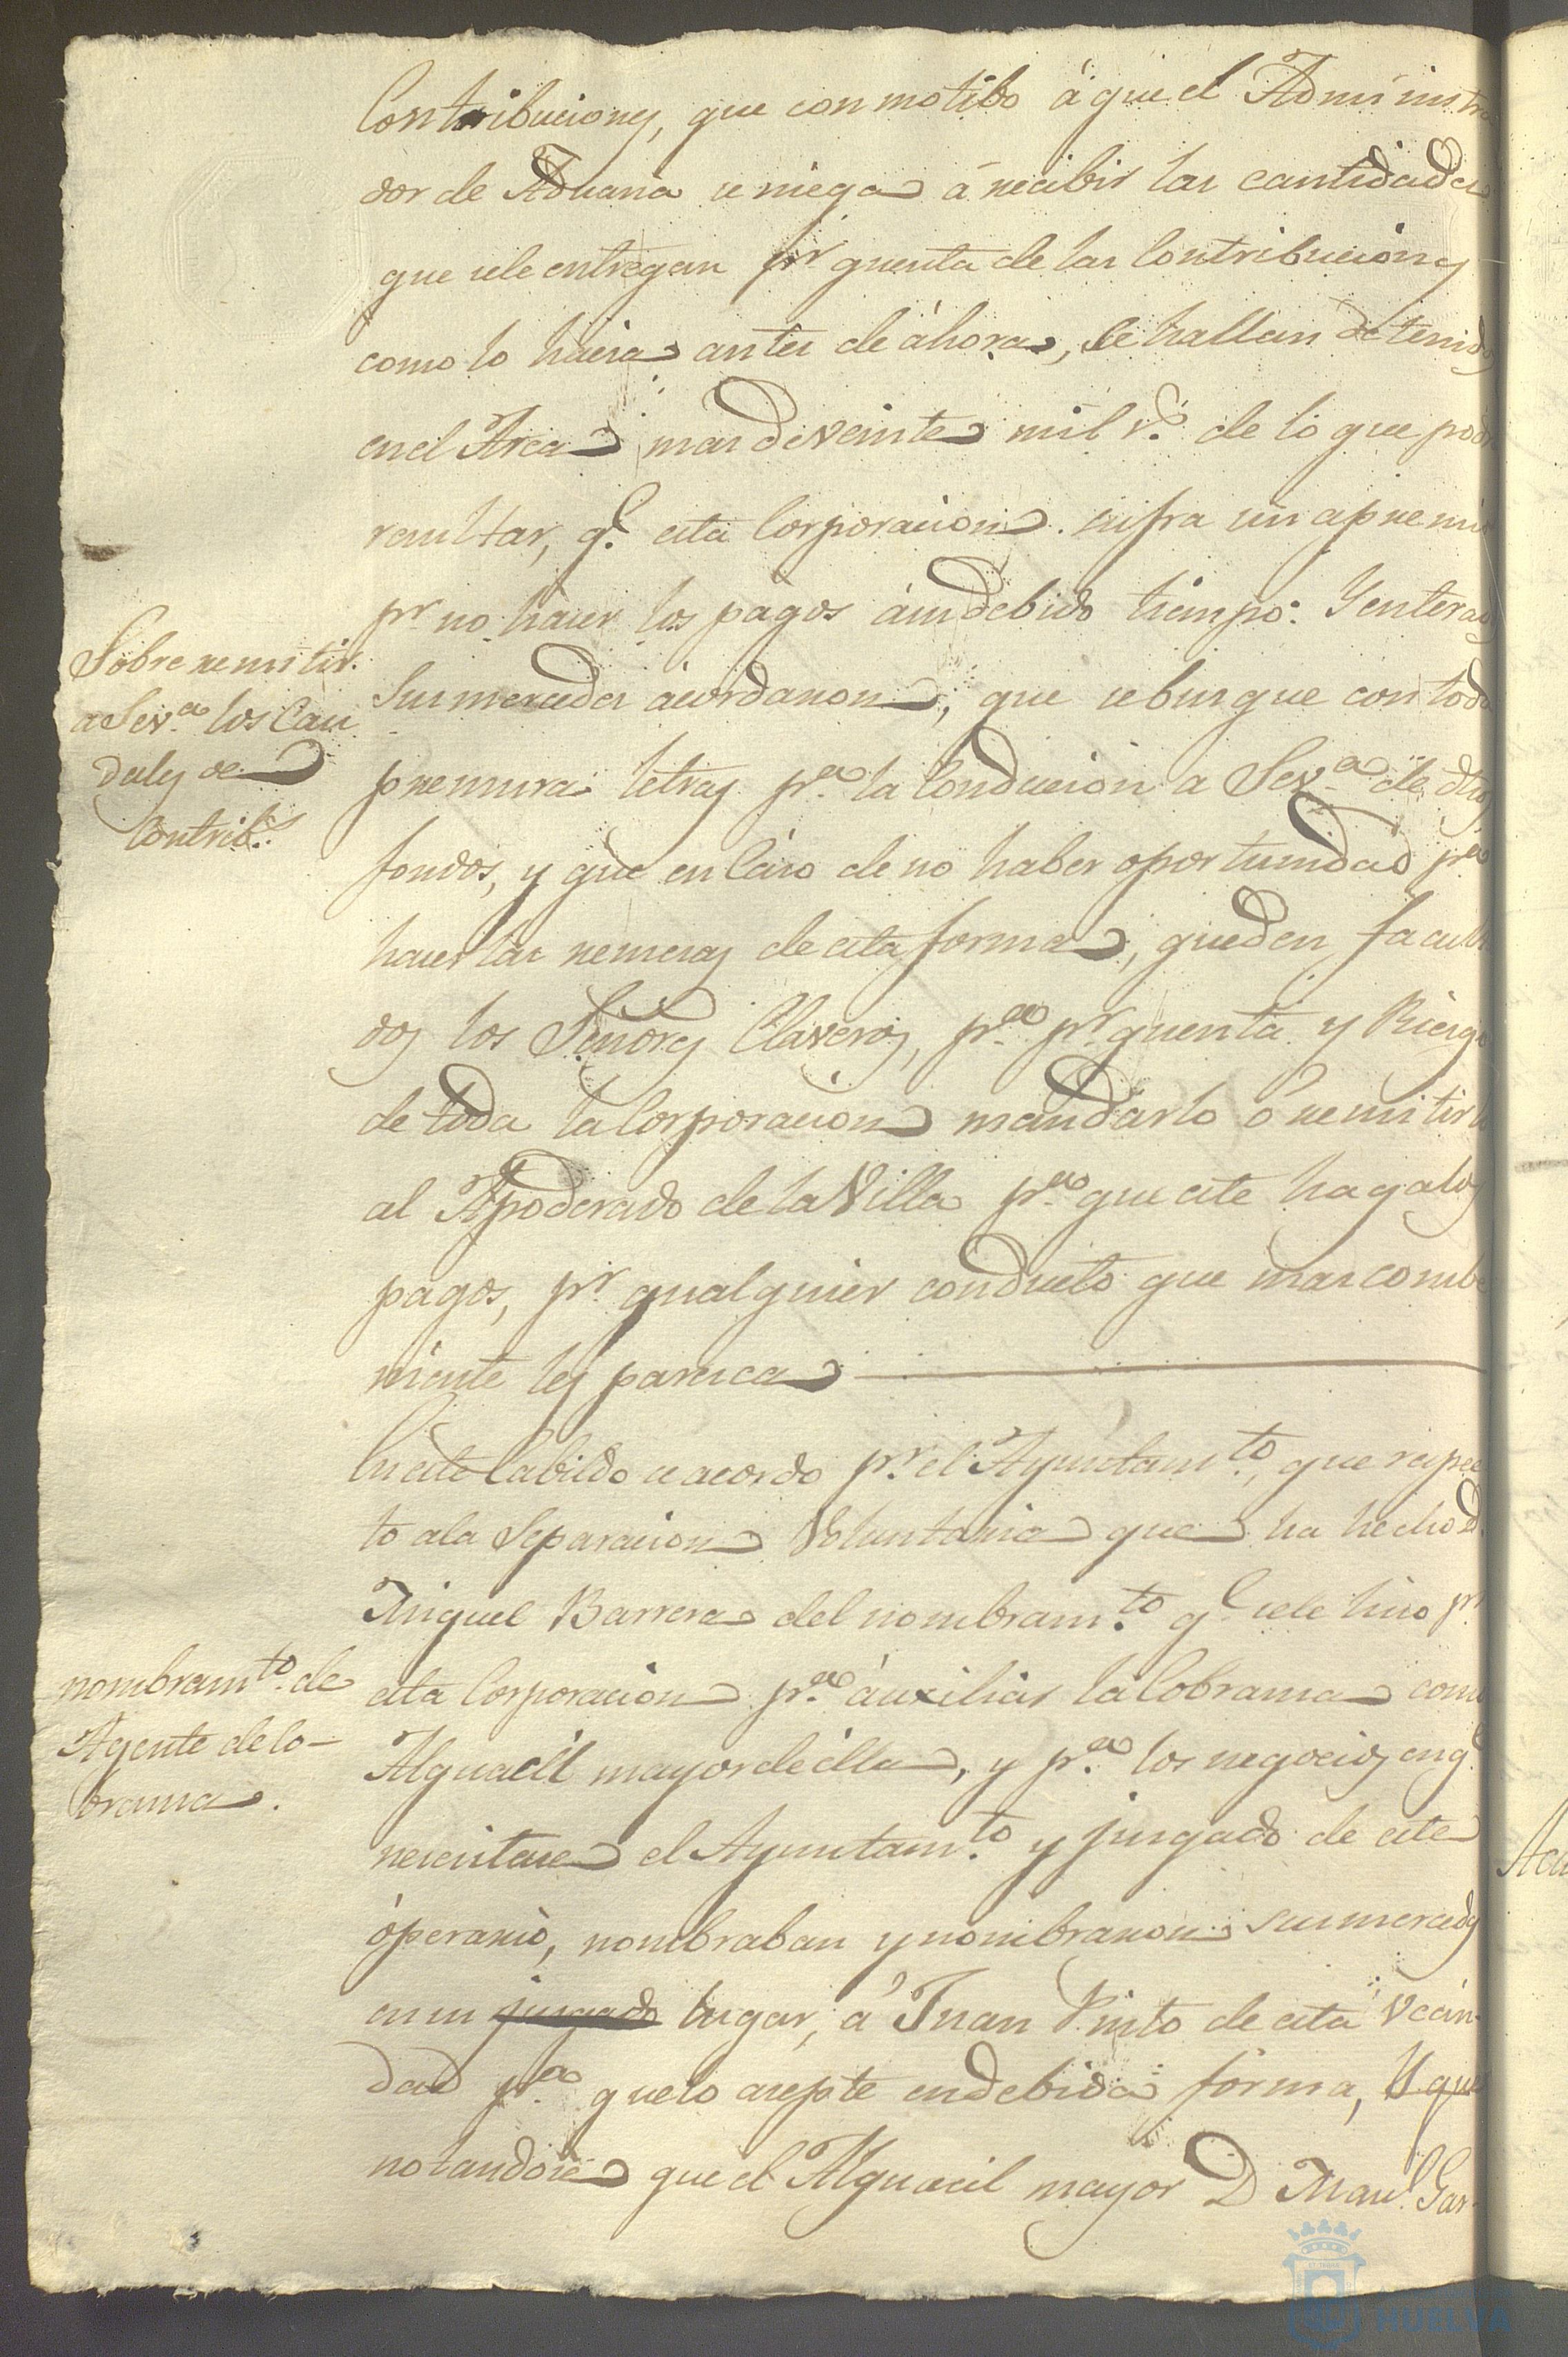 Contribuciones, que con motibo á que el Administra
dor de Aduana se niega á recibir las cantidades
que sele entregan pr. quenta de las Contribuciones
como lo hacia antes de áhora, se hallan detenidos
en el Arca mas de veinte mil rs. de lo que podra
resultar, qe. esta Corporacion sufra un apremio
pr. no hacer los pagos ásu debido tiempo: Y enterados
Sobre remitir
a Seva. los Cau
dales de
Contribs.
sus mercedes acordaron, que se busque con toda
premura letras pra. la Conducion a Seva. de dhos
fondos, y que en Caso de no haber oportunidad pra.
hacer las remesas de esta forma, queden faculta
dos los Señores Claveros, pra. pr. quenta y Riesgo
de toda la Corporacion mandarlo ó remitirlo
al Apoderado de la Villa pra. que este haga los
pagos, pr. qualquier conducto que mas combe
niente les paresca
En este Cabildo se acordo pr. el Ayuntamto., que respec
to ala Separacion Voluntaria que ha hecho D.
Miguel Barrera del nombramto. qe. sele hizo pr.
nombramto. de
Agente de Co-
bransa.
esta Corporacion pra. áuxiliar la Cobransa como
Alguacil mayor de élla, y pra. los negocios en qe.
necesitase el Ayuntamto. y jusgado de este
óperario, nombraban y nombraron sus mercedes
en su jusgado lugar, á Juan Pinto de esta Vecin-
dad pra. que lo asepte en debida forma, Y que
notandose que el Alguacil mayor D Manl. Gar-
HUELVA